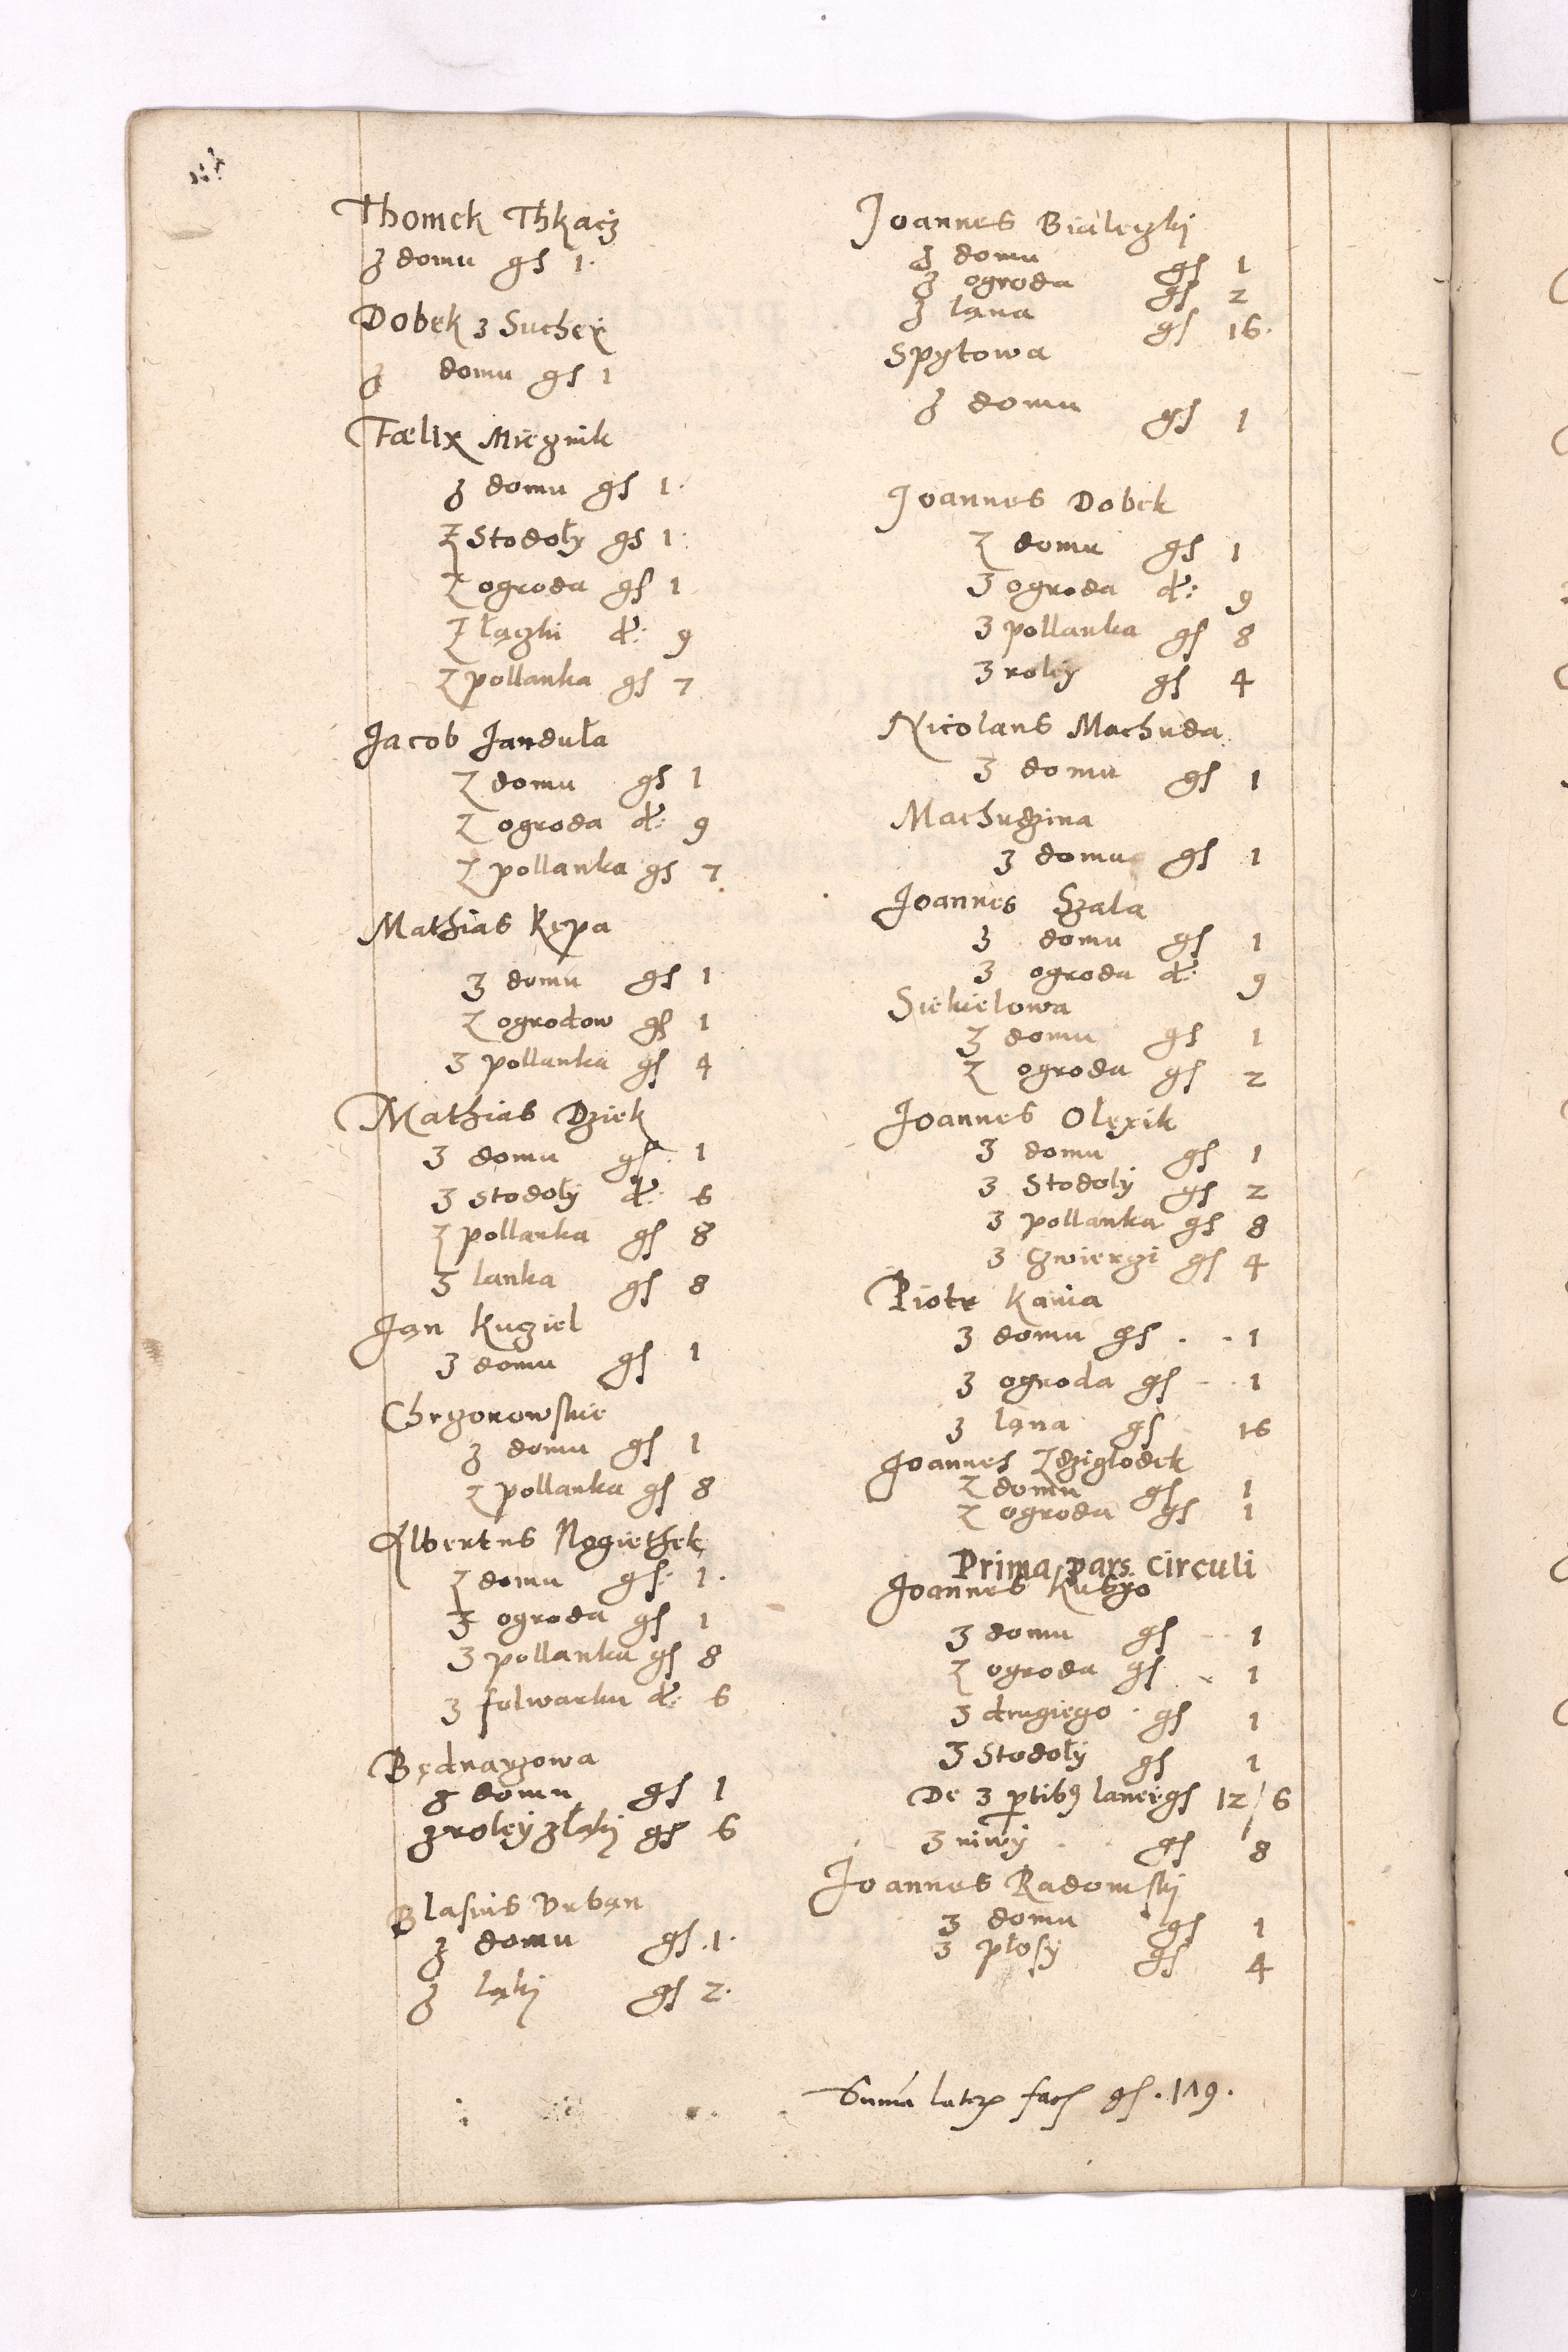 Thomek Thkacz
z domu gs 1.
Dobek z Suchey
z domu gs 1
Fælix Miecznik
z domu gs 1.
z Stodoły gs 1.
z ogroda gs 1
z łączki d: 9
z pollanka gs 7
Jacob Janduła
z domu gs 1
z ogroda d: 9
z pollanka gs 7.
Mathias Kępa
z domu gs 1
z ogrodow gs 1
z pollanka gs 4
Mathias Dziek
z domu gs: 1
z stodoły d: 6
z pollanka gs 8
z lanka gs 8
Jan Kuziel
z domu gs 1
Chrzonowskie
z domu gs 1
z pollanka gs 8
Albertus Nogiethek
z domu gs: 1.
z ogroda gs 1
z pollanku gs 8
z folwarku d: 6
Będnarzowa
z domu gs 1
z roley z łąky gs 6
Blasius Urban
z domu gs. 1.
z łąky gs 2.
Joannes Bialeczki
z domu gs 1
z ogroda gs 2
z lana gs 16.
Spytowa
z domu gs 1
Joannes Dobek
z domu gs 1
z ogroda d: 9
z pollanka gs 8
z roley gs 4
Nicolaus Machuda
z domu gs 1
Machudzina
z domu gs 1
Joannes Szala
z domu gs 1
z ogroda d: 9
Siekielowa
z domu gs 1
z ogroda gs 2
Joannes Olexik
z domu gs 1
z Stodoły gs 2
z pollanka gs 8
z czwierzi gs 4
Piotr Kania
z domu gs . . 1
z ogroda gs - . 1
z lana gs 16
Joannes Zdziglodek
z domu gs 1
z ogroda gs 1
Prima pars circuli
Joannes Kubyo
z domu gs - - 1
z ogroda gs . 1
z drugiego . gs 1
z Stodoły gs 1
De 3 ptibg lanei gs 12/6
z niwy . gs 8
Joannes Radomski
z domu gs 1
z płosy gs 4
Suma latex facs gs. 179.